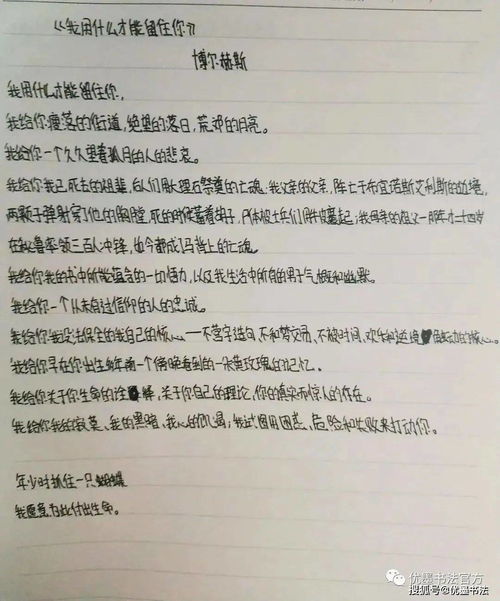 《我用什么才能留住你》
博尔赫斯
我用什么才能留住你,
我给你瘦落的街道,绝望的落日,荒郊的月亮。
我给你一个久久望着孤月的人的悲哀。
我给你我已死去的祖辈,后人们用大理石祭奠的亡魂,我父亲的父亲,阵亡于布宜诺斯艾利斯的边境,
两颗子弹射穿了他的胸膛,死的时候蓄着胡子,尸体被士兵们用牛皮裹起;我母亲的祖父一那年才二十四岁
在秘鲁率领三百人冲锋,如今都成了马背上的亡魂。
我给你我的书中所能蕴含的一切悟力,以及我生活中所有的男子气概和幽默。
我给你一个从未有过信仰的人的忠诚。
我给你我设法保全的我自己的核心——不营字造句,不和梦交易,不被时间、欢乐和逆境 触动的核心。
我给你早在你出生前多年前一个傍晚看到的一朵黄玫瑰的记忆。
我给你关于你生命的诠释,关于你自己的理论,你的真实而惊人的存在。
我给你我的寂寞、我的黑暗、我心的饥渴;我试图用困惑、危险和失败来打动你。
年少时抓住一只蝴蝶
我愿意为此付出生命。
优墨书法官方
搜狐号@优墨书法